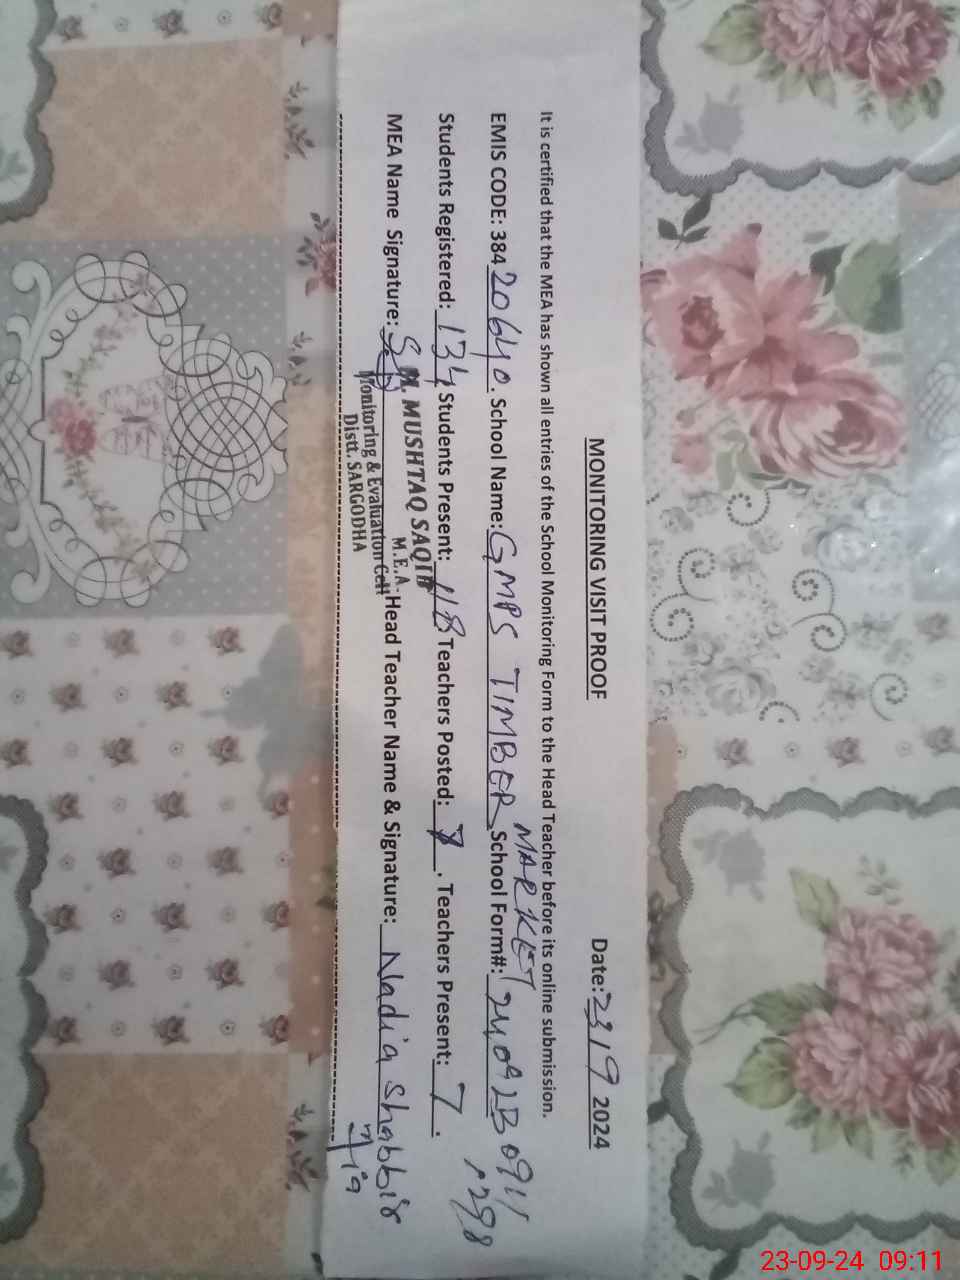 MONITORING VISIT PROOF Date: 23/9 2024
It is certified that the MEA has shown all entries of the School Monitoring Form to the Head Teacher before its online submission.
EMIS CODE: 38420640. School Name: GMPS TIMBER MARKET School Form#:
Students Registered: 134 Students Present: 118 Teachers Posted: 7. Teachers Present: 7.
MEA Name Signature: Head Teacher Name & Signature: Nadia Shabbir
M. MUSHTAQ SAQIB
M.E.A
Monitoring & Evaluation Cell
Distt. SARGODHA
23-09-24 09:11